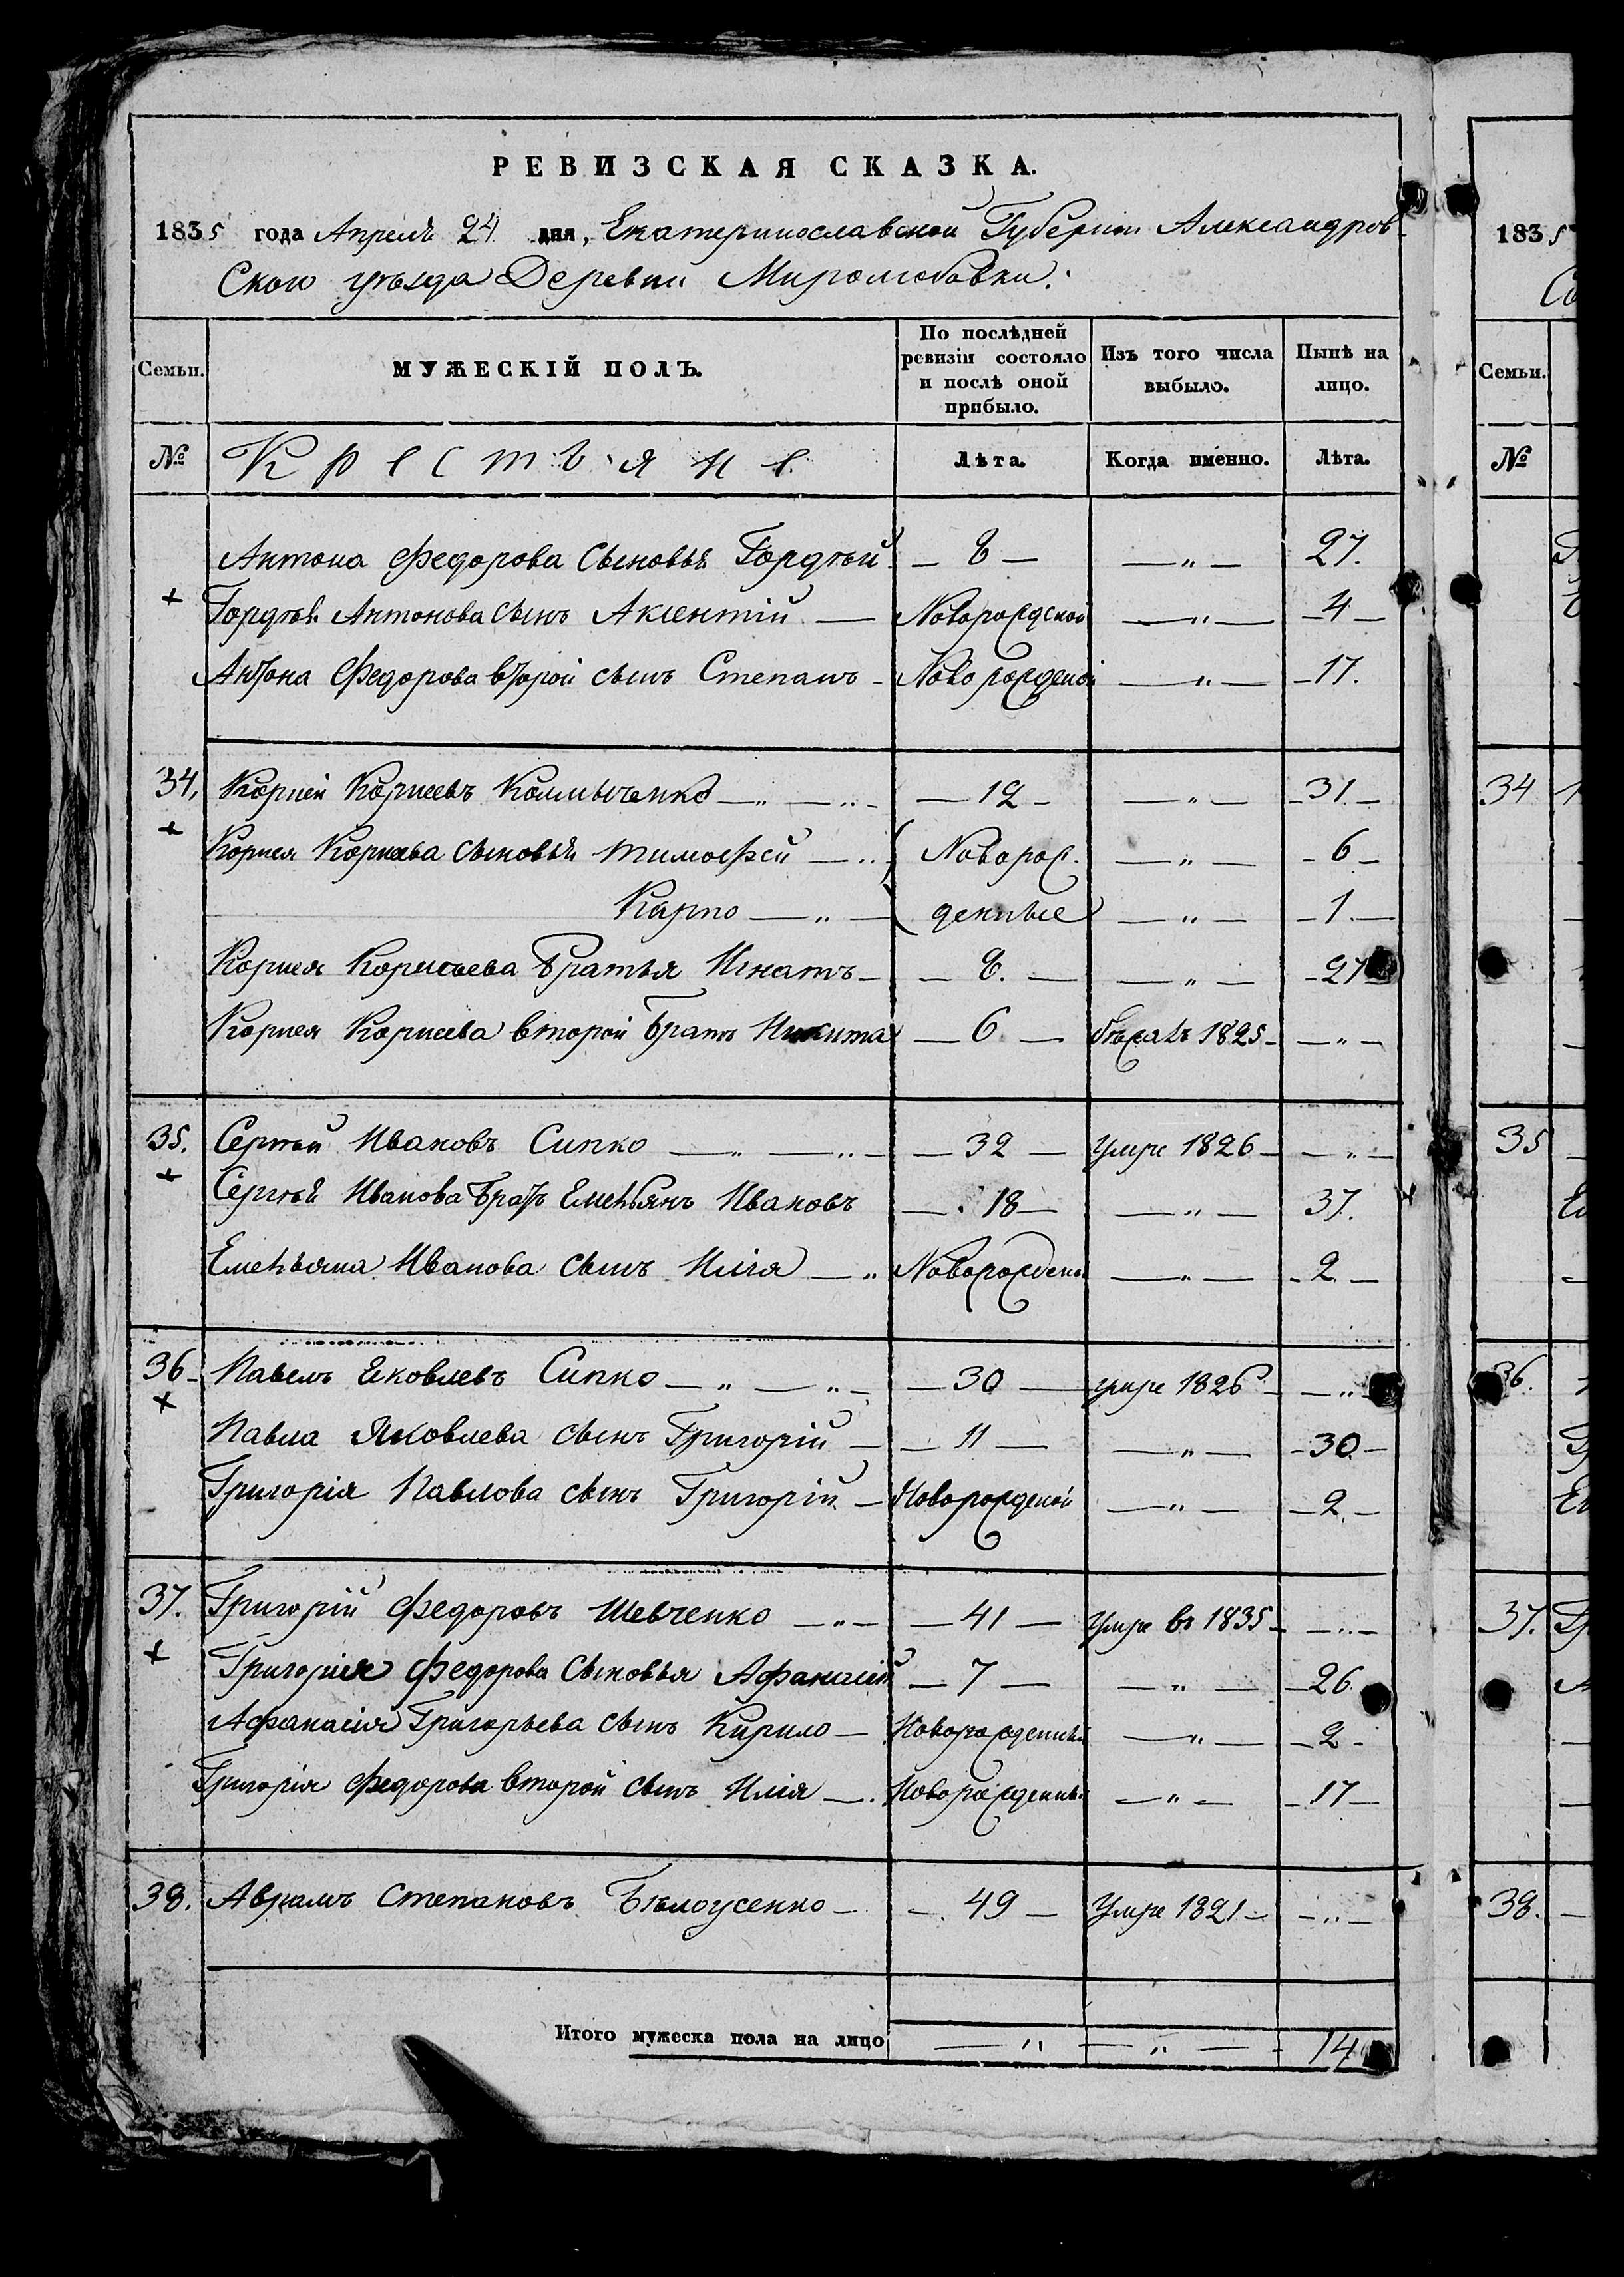 РЕВИЗСКАЯ СКАЗКА.
1835 года Апреля 24 дня, Екатеринославской Губернии Александров-
ского уѣзда Деревни Миролюбовки.
Семьи. МУЖЕСКІЙ ПОЛЪ. По послѣдней ревизіи состояло и послѣ оной прибыло. Изъ того числа выбыло. Нынѣ на лицо.
№ Крестьяне Лѣта. Когда именно. Лѣта.
Антона Федорова сыновья Гордѣй — 8 — — „ — 27.
+ Гордѣя Антонова сынъ Аксентій — Новорожденой — „ — — 4 —
Антона Федорова второй сынъ Степанъ — Новорожденой — „ — — 17.
34. Корней Корнеевъ — „ — „ — — 12 — — „ — — 31 —
+ Корнея Корнеева сыновья Тимофей — „Новорож- — „ — — 6 —
Карпо — „ — денные — „ — — 1 —
Корнея Корнеева братья Игнатъ — — 8. — — „ — — 27
Корнея Корнеева второй братъ Никита — 6 — бѣжалъ 1825 — — „ —
35. Сергѣй Ивановъ Сипко — „ — „ — — 32 — умре 1826 — — „ —
+ Сергѣя Иванова братъ Емельянъ Ивановъ — 18 — — „ — 37.
Емельяна Иванова сынъ Илія — „ Новорожденой — „ — — 2 —
36 — Павелъ Яковлевъ Сипко — „ — „ — — 30 — умре 1826 — — „ —
+ Павла Яковлева сынъ Григорій — — 11 — — „ — — 30 —
Григорія Павлова сынъ Григорій — Новорожденой — „ — — 2 —
37. Григорій Федоровъ Шевченко — „ — — 41 — умре въ 1835 — — „ —
+ Григория Федорова сыновья Афанасій — 7 — — „ — — 26
Афанасія Григорьева сынъ Кирило — Новорожденный — „ — — 2 —
Григорія Федорова второй сынъ Илія — . Новорожденный — „ — — 17 —
38. Аврамъ Степановъ Бѣлоусенко — — 49 — умре 1821 — — „ —
Итого мужеска пола на лицо — „ — „ — 14
183 5
Семьи.
№
34
35
36.
37.
38.